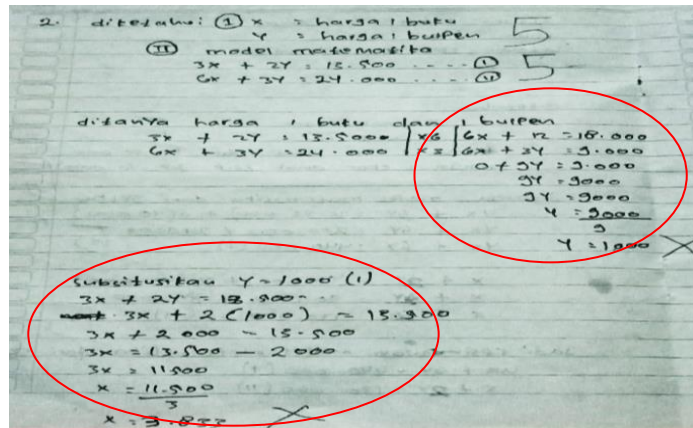 2. diketahui: (I) x = harga 1 buku
y = harga 1 bulpen 5
(II) model matematika
3x + 2y = 13.500 ..... (I) 5
6x + 3y = 24.000 ..... (II)
ditanya harga 1 buku dan 1 bulpen
3x + 2y = 13.5000 | x6 | 6x + 12 = 18.000
6x + 3y = 24.000 | x3 | 6x + 3y = 9.000
0 + 9y = 9.000
9y = 9000
9y = 9000
y = 9000
9
y = 1000
Subsitusikan y = 1000 (1)
3x + 2y = 13.500
3x + 2 (1000) = 13.500
3x + 2000 = 13.500
3x = 13.500 - 2000
3x = 11500
x = 11.500
3
x = 3.833